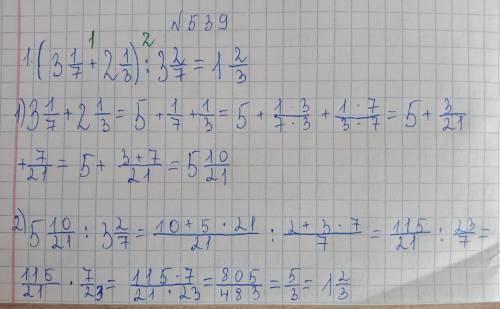 №539
1 2
1. (3 1/7 + 2 1/3) : 3 2/7 = 1 2/3
1) 3 1/7 + 2 1/3 = 5 + 1/7 + 1/3 = 5 + 1·3/7·3 + 1·7/3·7 = 5 + 3/21
+ 7/21 = 5 + 3+7/21 = 5 10/21
2) 5 10/21 : 3 2/7 = 10+5·21/21 : 2+3·7/7 = 115/21 : 23/7 =
115/21 · 7/23 = 115·7/21·23 = 805/483 = 5/3 = 1 2/3